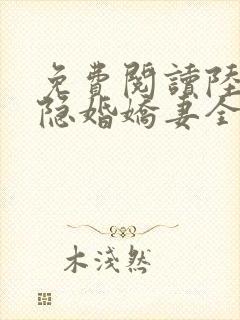 免費閱讀陸
隐婚嬌妻全
木淺然